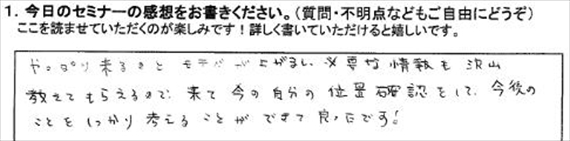 1. 今日のセミナーの感想をお書きください。(質問・不明点などもご自由にどうぞ)
ここを読ませていただくのが楽しみです!詳しく書いていただけると嬉しいです。
やっぱり来るとモチベが上がるし、必要な情報も沢山
教えてもらえるので、来て今の自分の位置確認をして、今後の
ことをしっかり考えることができて良かったです!